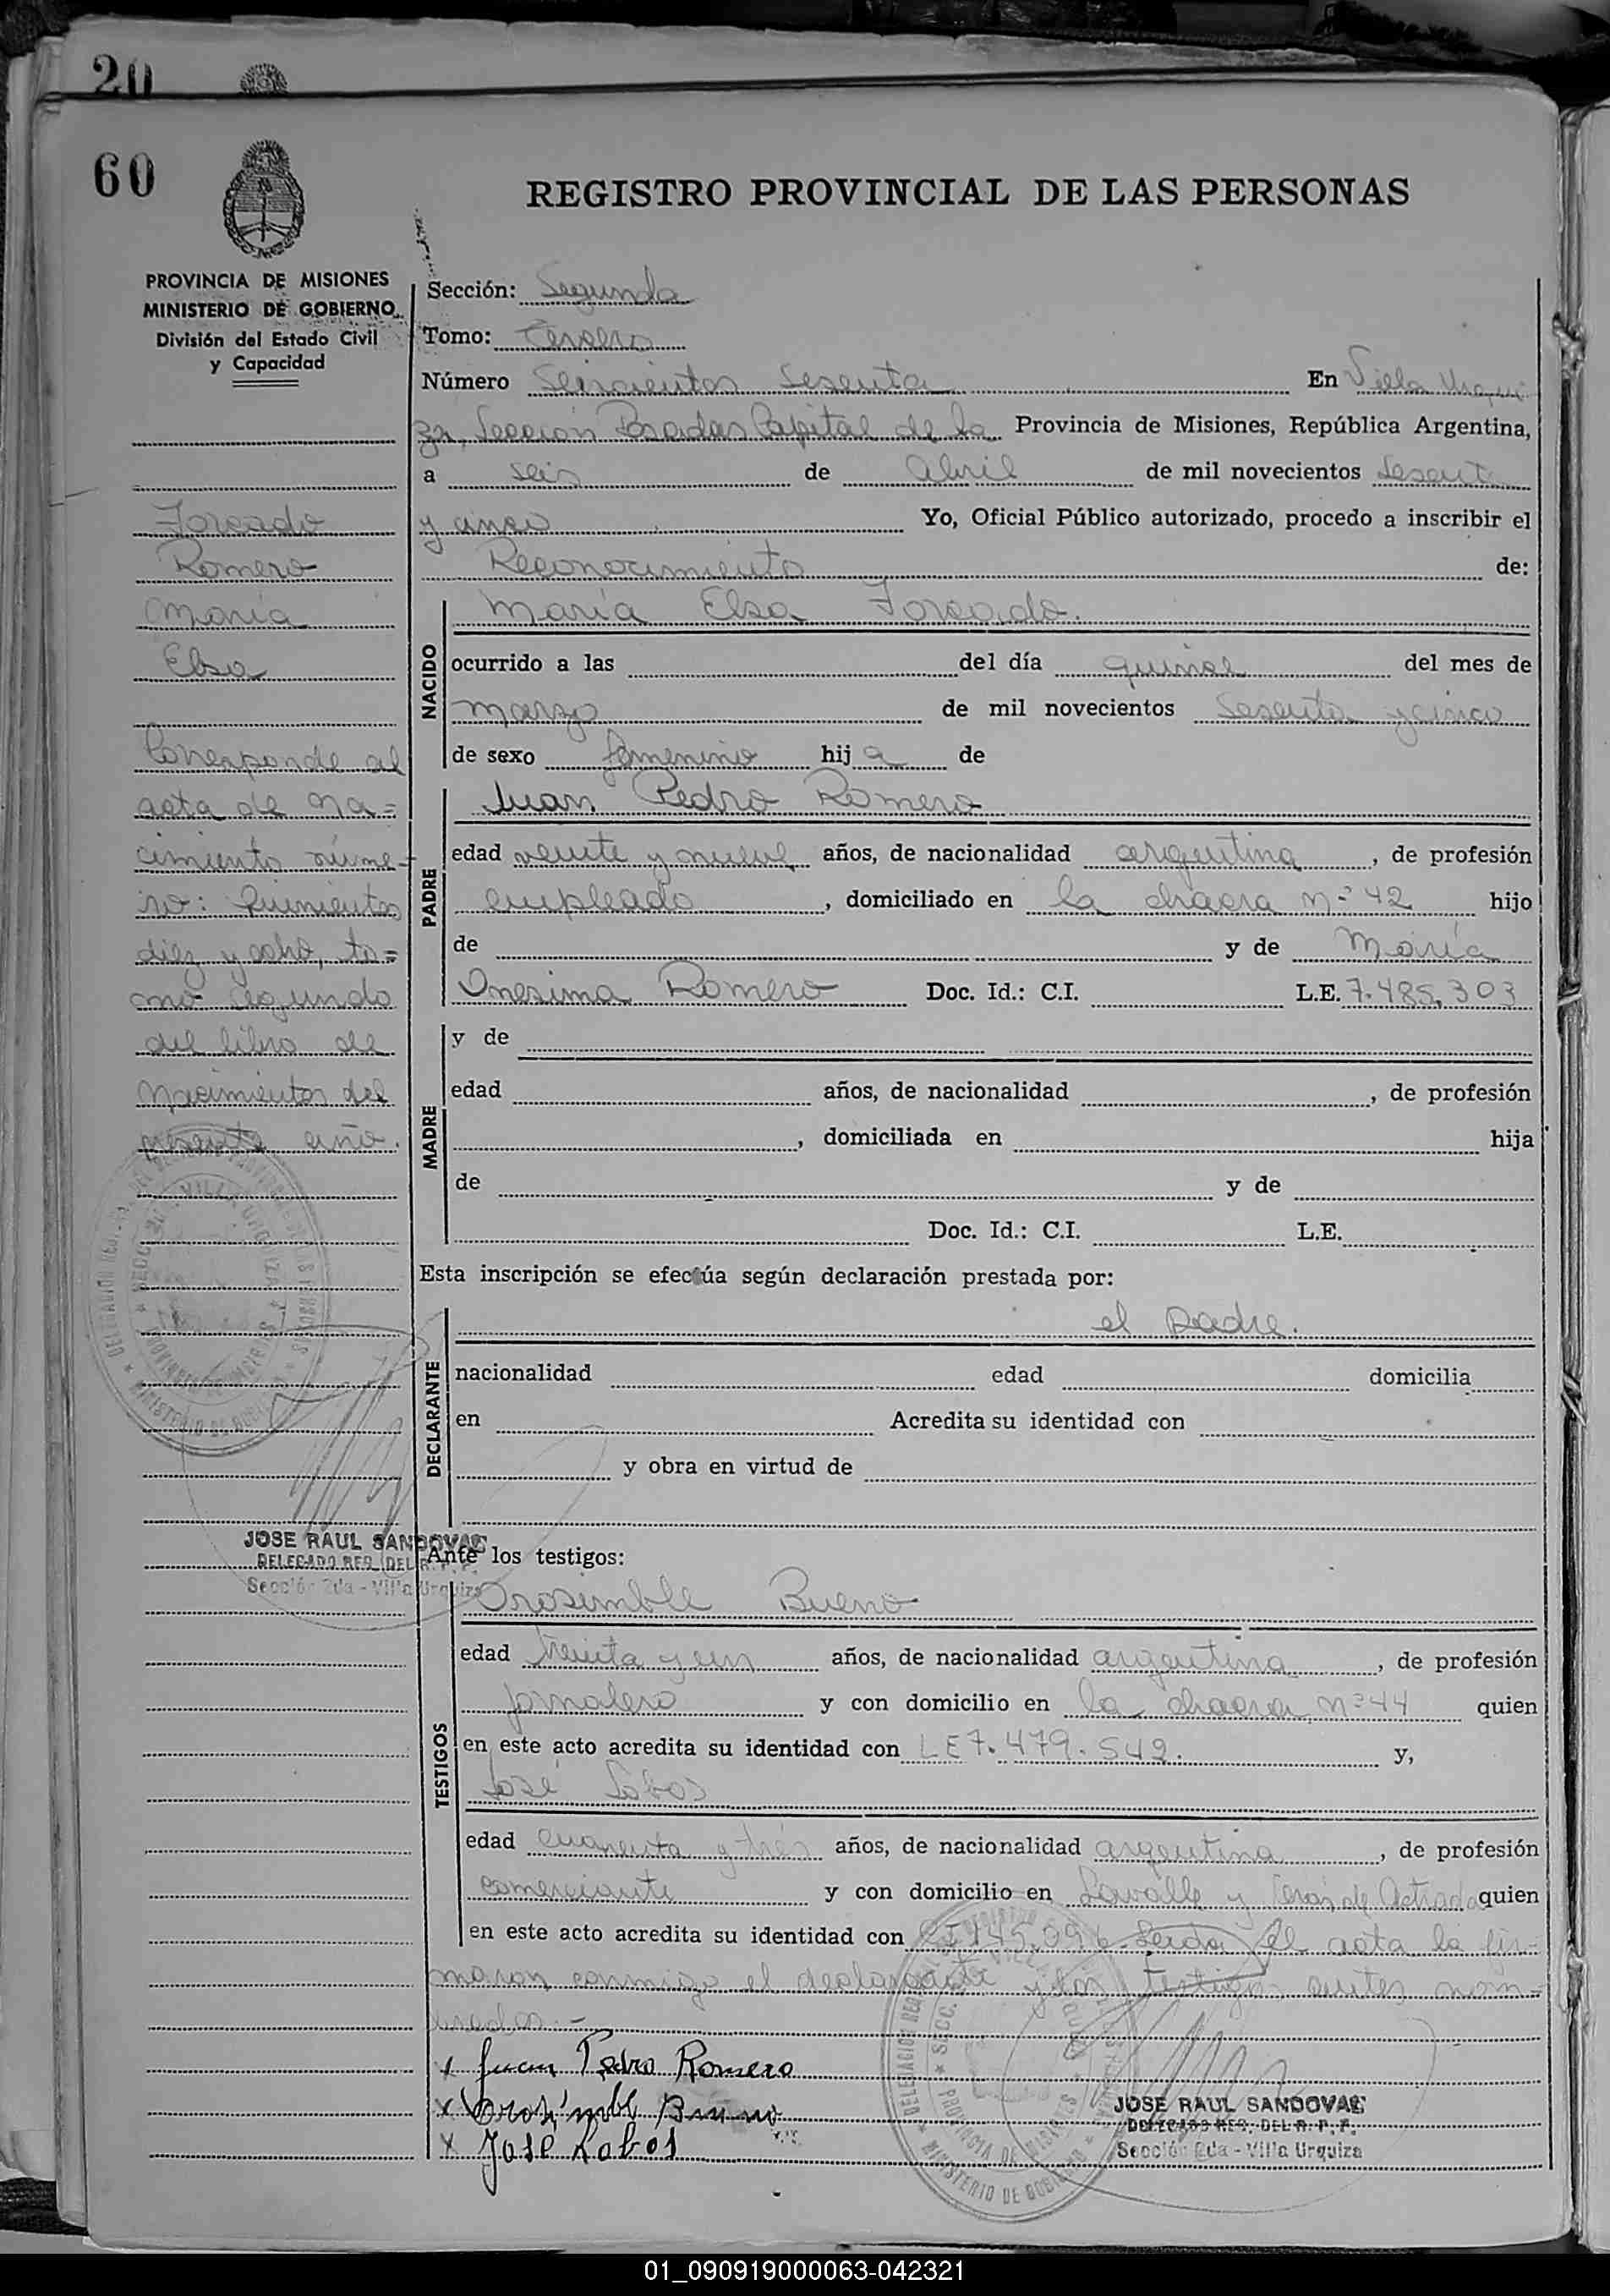 20
60
REGISTRO PROVINCIAL DE LAS PERSONAS
PROVINCIA DE MISIONES
MINISTERIO DE GOBIERNO
División del Estado Civil
y Capacidad
Sección: Segunda
Tomo: Tercero
Número Seiscientos Sesenta En Villa Urqui
za, Sección Posadas Capital de la Provincia de Misiones, República Argentina,
a seis de abril de mil novecientos sesenta
y cinco Yo, Oficial Público autorizado, procedo a inscribir el
Reconocimiento de:
Forcado
Romero
María
Elsa
Corresponde al
acta de na=
cimiento núme-
ro: Quinientos
diez y ocho, to=
mo segundo
del libro de
Nacimientos del
presente año.
NACIDO
María Elsa Forcado.
ocurrido a las del día quince del mes de
marzo de mil novecientos sesenta y cinco
de sexo femenino hija de
PADRE
Juan Pedro Romero
edad veinte y nueve años, de nacionalidad argentina, de profesión
empleado, domiciliado en la chacra nº 42 hijo
de y de María
Onesima Romero Doc. Id.: C.I. L.E. 7.485.303
MADRE
y de
edad años, de nacionalidad , de profesión
, domiciliada en hija
de y de
Doc. Id.: C.I. L.E.
Esta inscripción se efectúa según declaración prestada por:
DECLARANTE
el padre.
nacionalidad edad domicilia
en Acredita su identidad con
y obra en virtud de
JOSE RAUL SANDOVAL
DELEGADO REG. DEL R. P. P.
Sección 2da - Villa Urquiza
Ante los testigos:
TESTIGOS
Orosimble Bueno
edad treinta y un años, de nacionalidad argentina, de profesión
jornalero y con domicilio en la chacra nº 44 quien
en este acto acredita su identidad con LE 7.479.542. y,
José Lobos
edad cuarenta y tres años, de nacionalidad argentina, de profesión
comerciante y con domicilio en Lavalle y quien
en este acto acredita su identidad con Leida el acta la fir-
maron conmigo el declarante y los testigos antes nom=
brados.-
x Juan Pedro Romero
x Orosimble Bueno
x José Lobos
JOSE RAUL SANDOVAL
DELEGADO REG. DEL R. P. P.
Sección 2da - Villa Urquiza
01_090919000063-042321